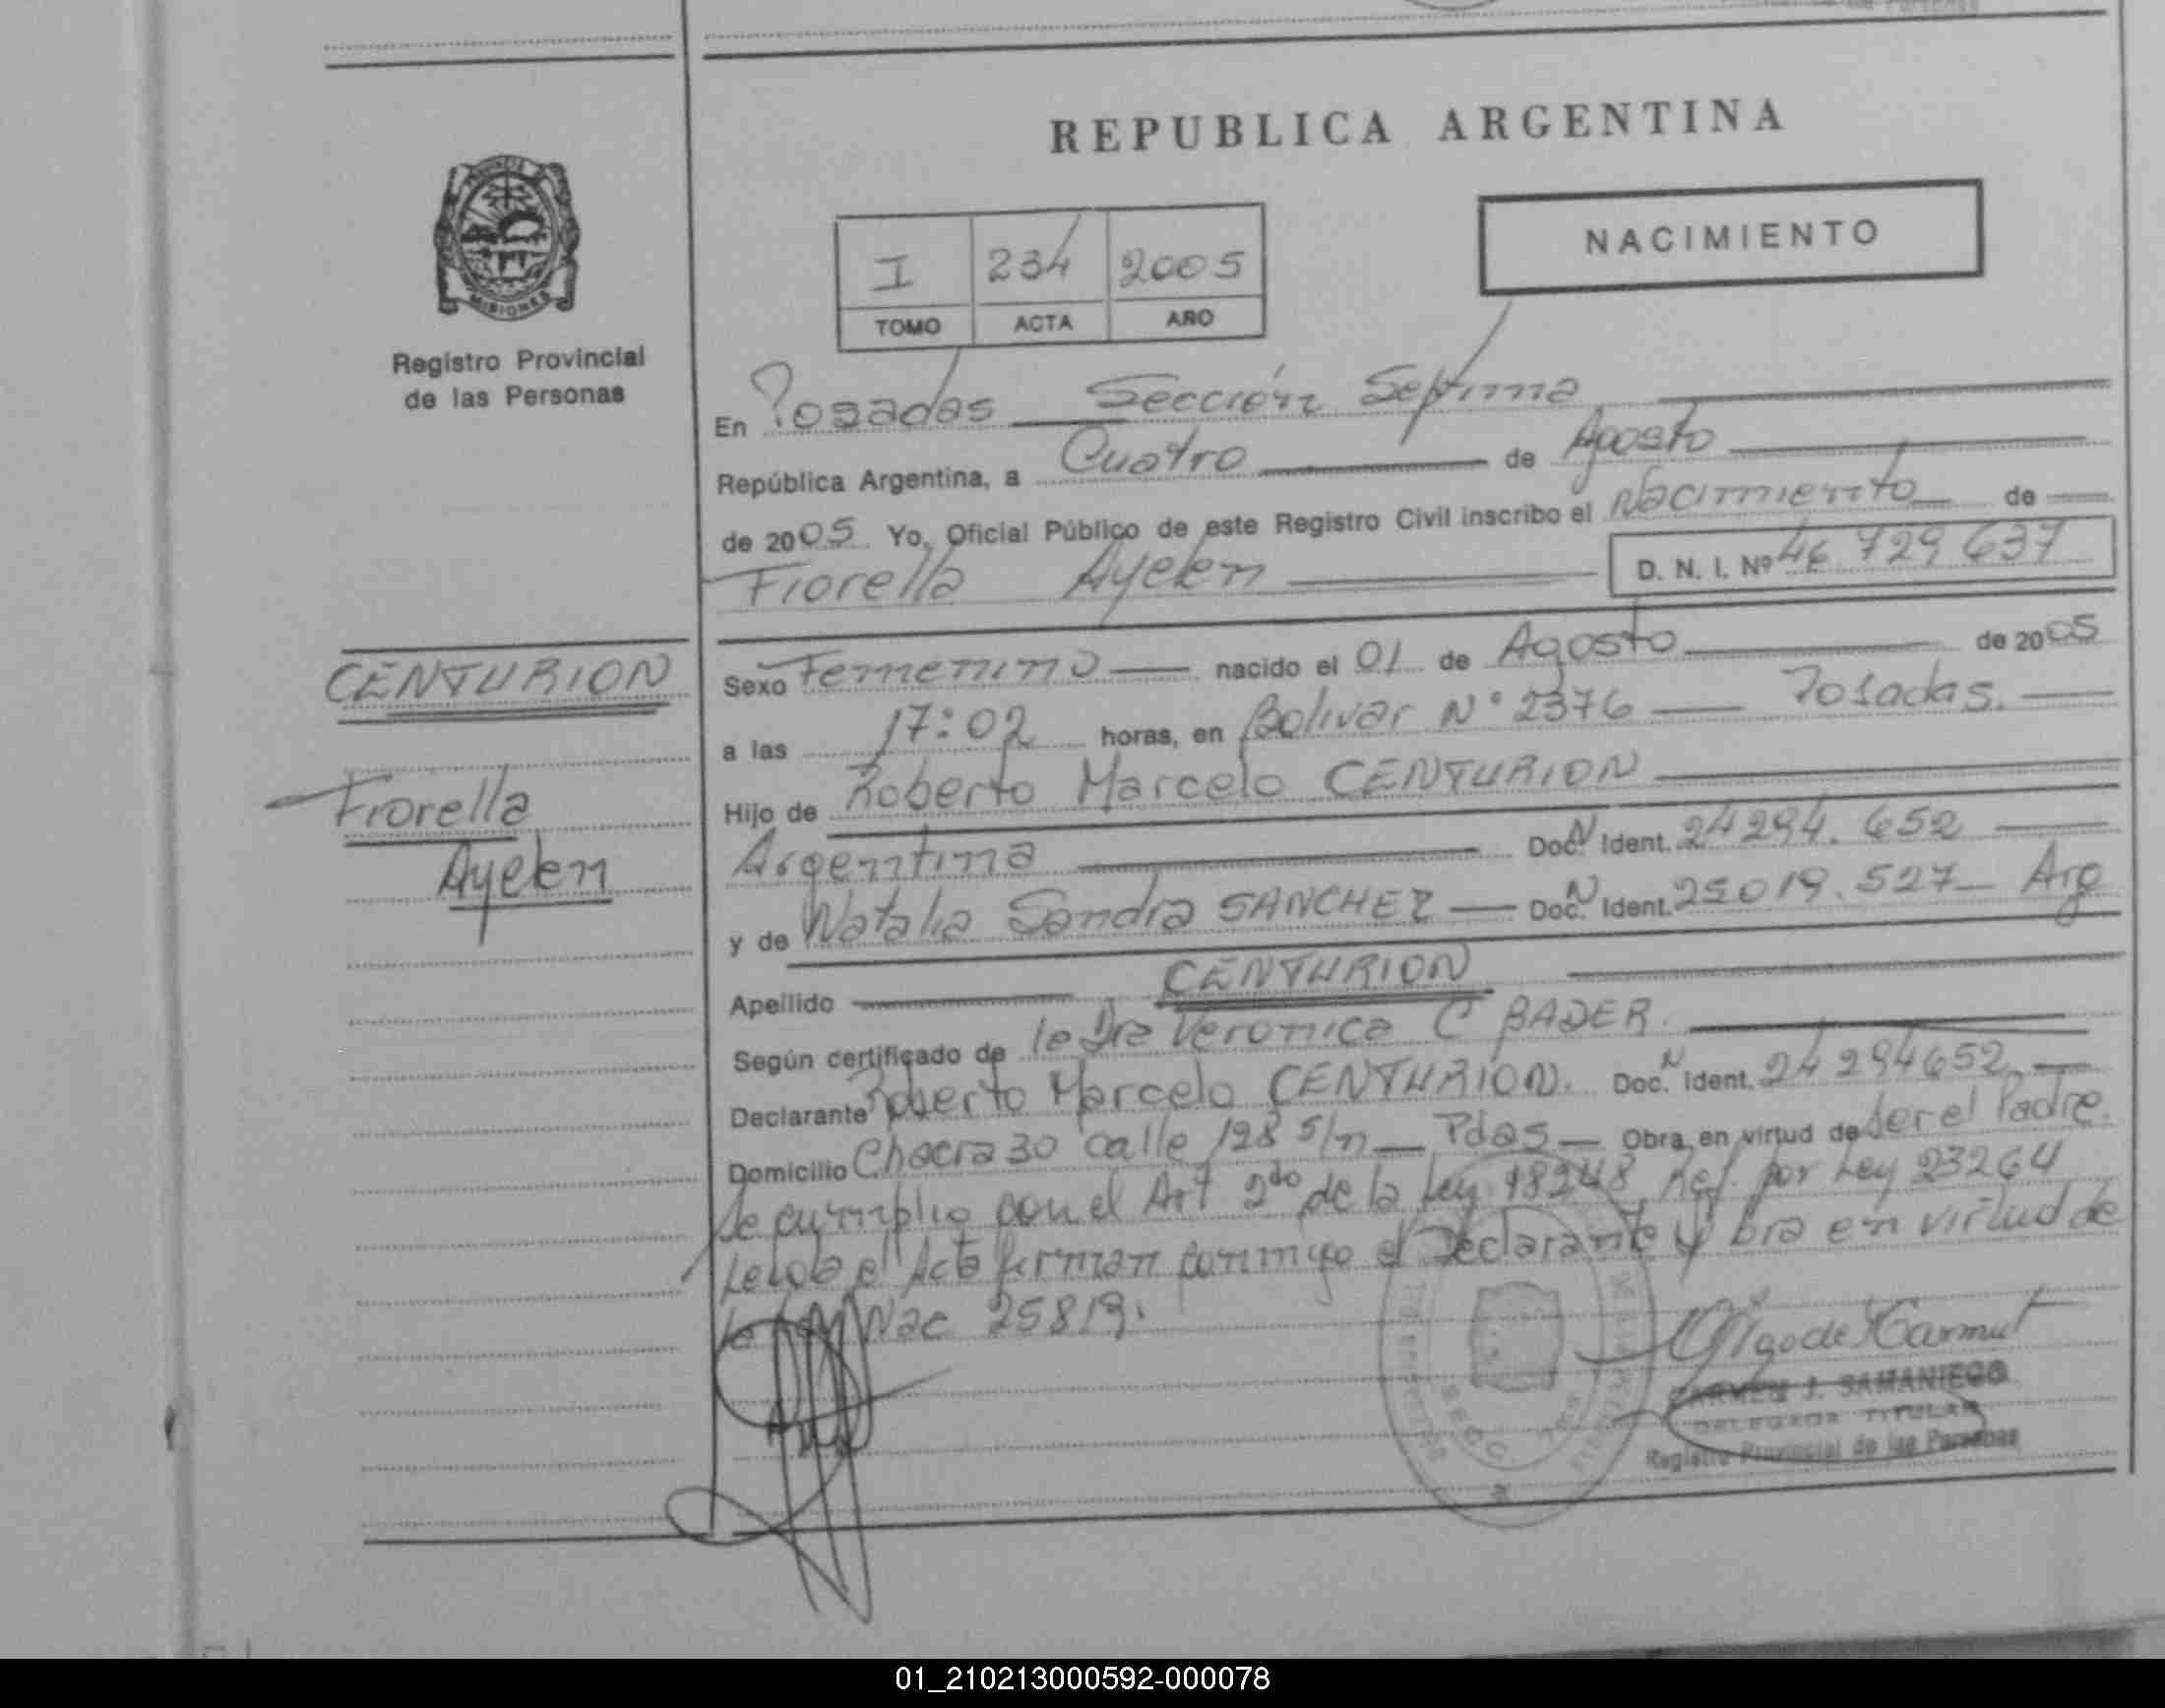 REPUBLICA ARGENTINA
NACIMIENTO
I 234 2005
TOMO ACTA AÑO
PROVINCIA
MISIONES
Registro Provincial
de las Personas
En Posadas Sección Septima
República Argentina, a Cuatro de Agosto
de 2005 Yo, Oficial Público de este Registro Civil inscribo el Nacimiento de
Fiorella Ayelen D. N. I. Nº 46 729 637
CENTURION
Fiorella
Ayelen
Sexo Femenino nacido el 01 de Agosto de 2005
a las 17:02 horas, en Bolivar N° 2376 Posadas.
Hijo de Roberto Marcelo CENTURION
Argentina Doc. N Ident. 24294.652
y de Natalia Sandra SANCHEZ Doc. N Ident. 25019.527 Arg
Apellido CENTURION
Según certificado de la Dra Veronica C BADER
Declarante Roberto Marcelo CENTURION. Doc. N Ident. 24294652
Domicilio Chacra 30 calle 128 s/n Pdas Obra en virtud de Ser el Padre.
Se cumplio con el Art 2do de la Ley 18248. Ref. por Ley 23264
Leida el Acta firman conmigo el Declarante y Obra en virtud de
la Ley Nac 25819.
CARMEN J. SAMANIEGO
DELEGADA TITULAR
Registro Provincial de las Personas
01_210213000592-000078